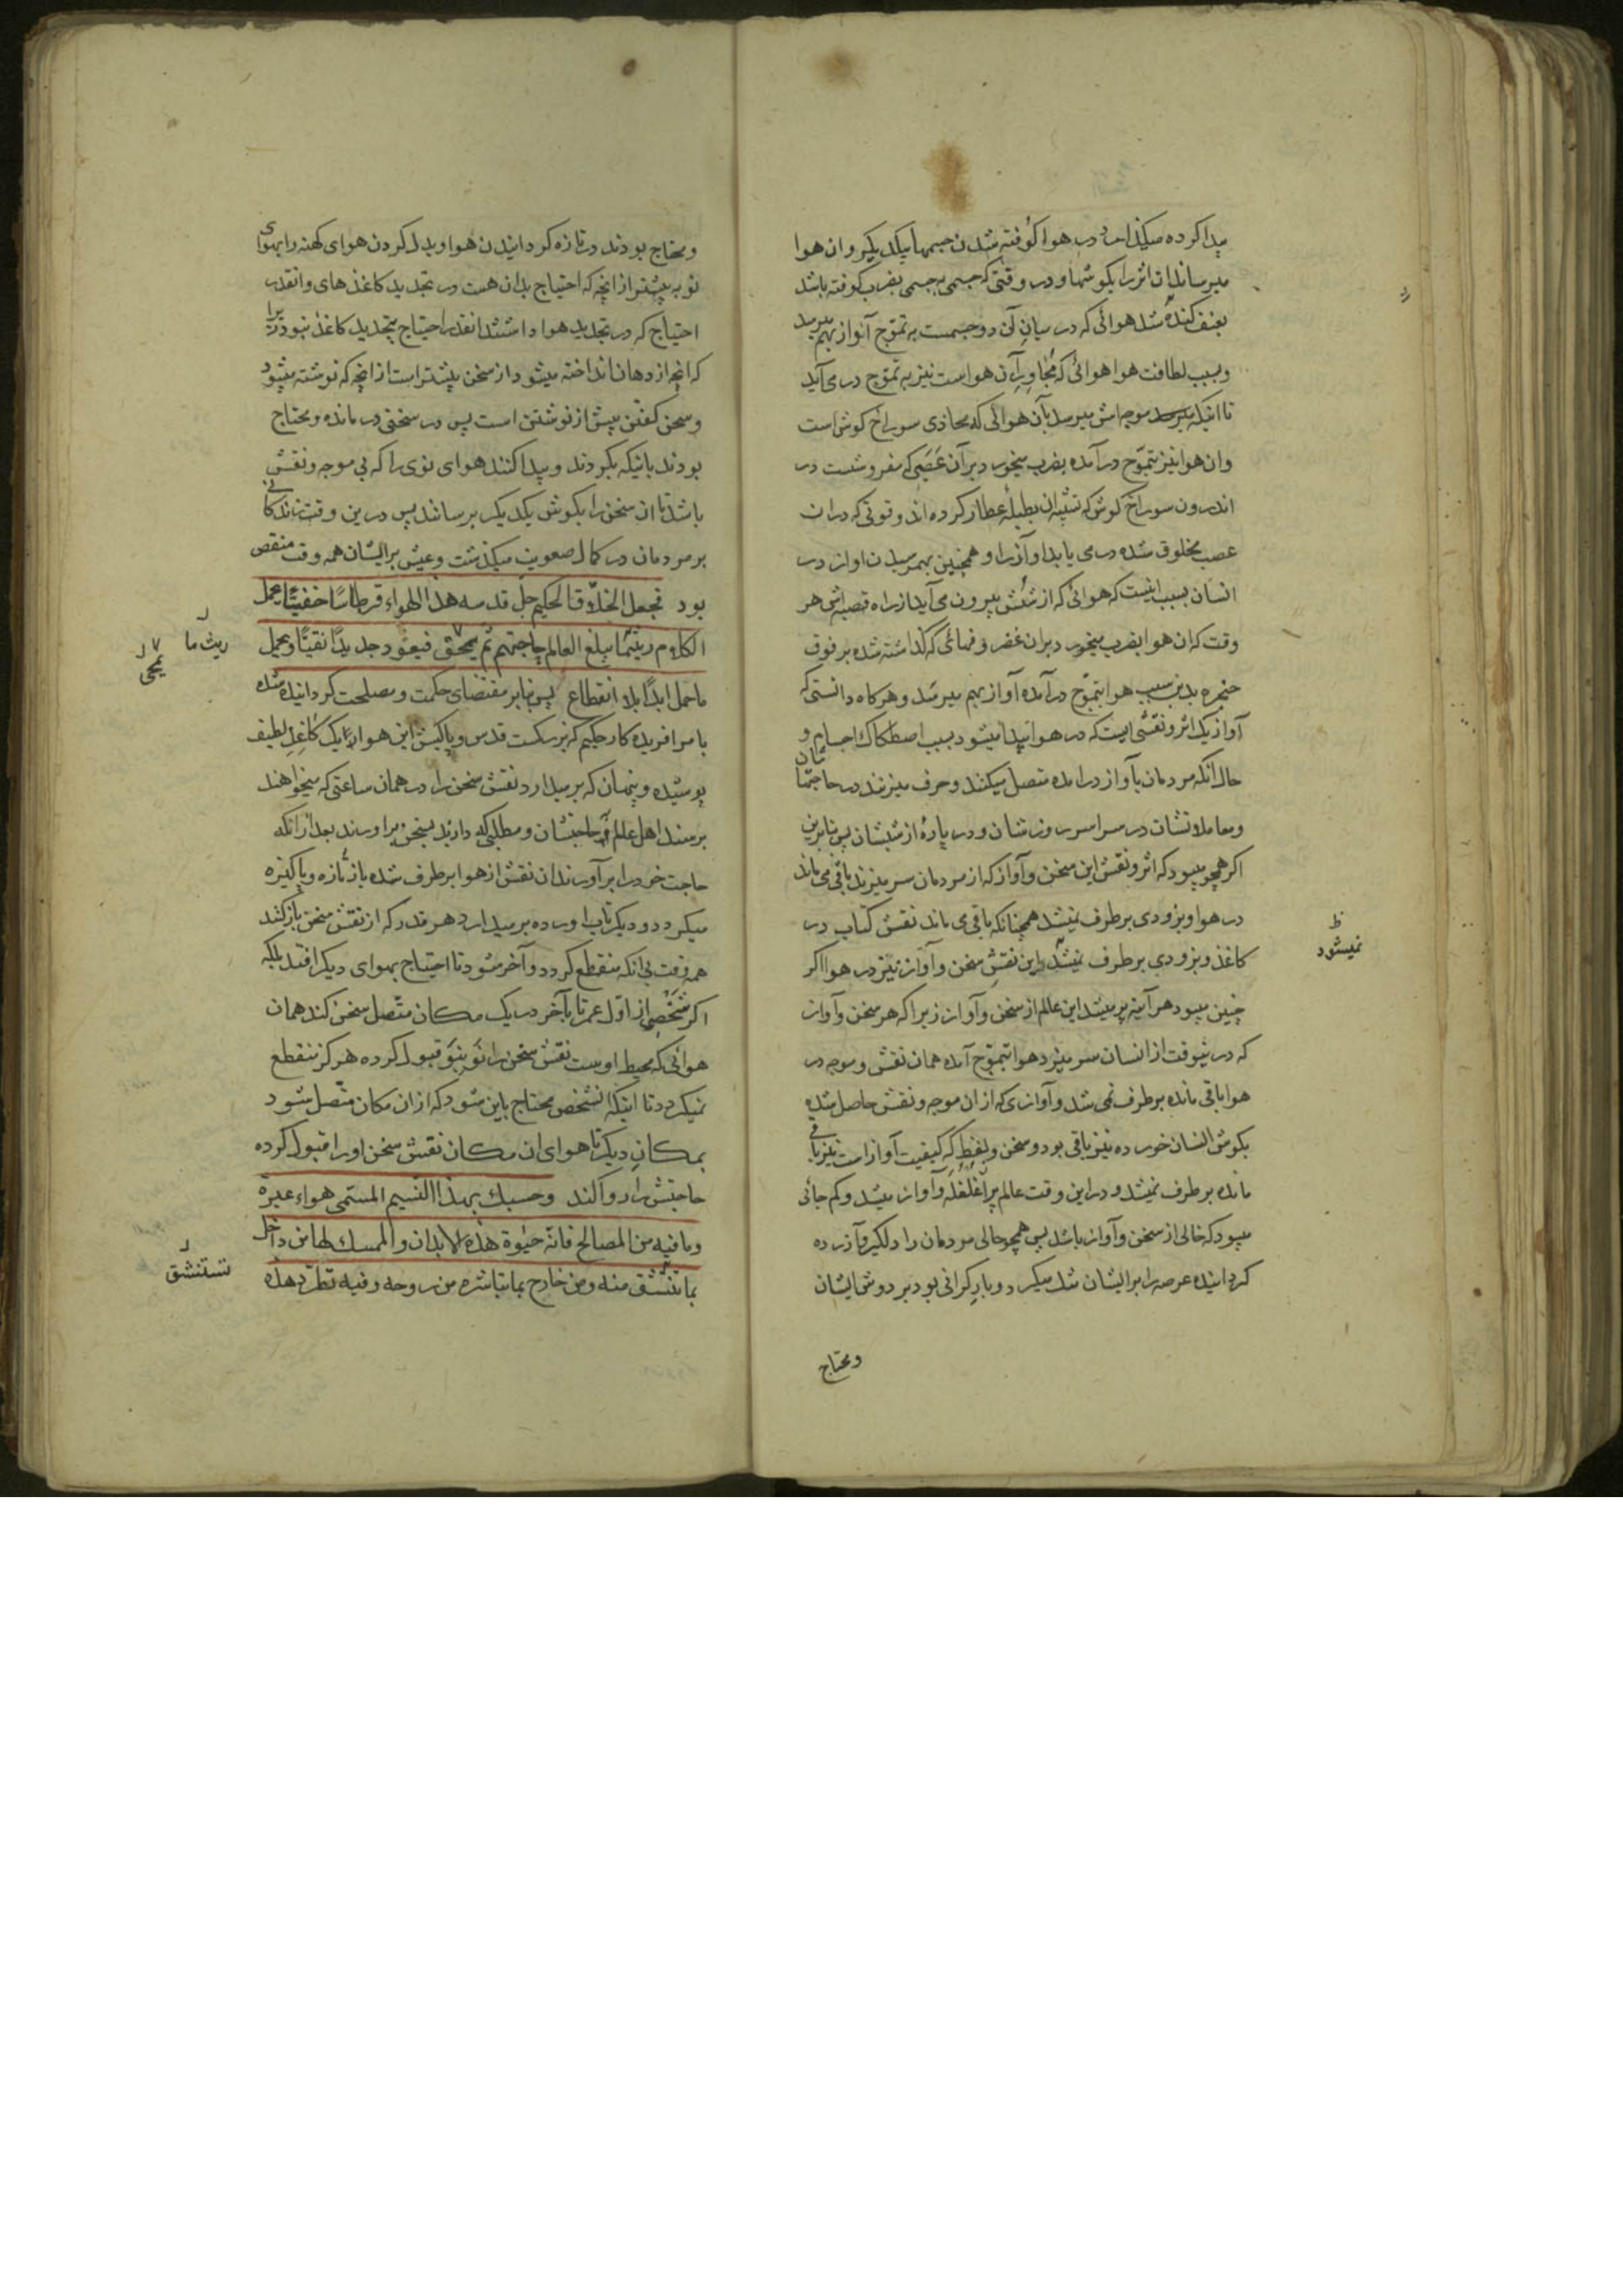 پیدا کرده میکند اما در هوا کوفته شدن جسمها بیکدیکر وان هوا
میرساند ان اثر را بکوشها و در وقتی که جسمی بجسمی بضرب کوفته باشد
بعنف کنده شد هوائی که در میان آن دو جسمست به تموّج آواز بهم میرسد
وبسبب لطافت هوا هوائی که مجاور آن هواست نیز به تموّج در می آید
تا اینکه موجه اش میرسد بآن هوائی که محاذی سوراخ کوش است
وان هوا نیز بتموّج در آمده بضرب میخورد بر آن عَصَبی که مفروشست در
اندرون سوراخ کوش که تشبیه ان بطبلهٔ عطار کرده اند وقوتی که در ان
عصب مخلوق شده در می یابد او آواز را وهمچنین بهمرسیدن اواز در
انسان بسبب اینست که هوائی که از شُشش بیرون می آید از راه قصبه اش هر
وقت که ان هوا بضرب میخورد بر ان غضروفهائی که کذاشته شده بر فوق
حنجره بدین سبب هوا بتموّج در آمده آواز بهم میرسد وهرکاه دانستی که
آواز یک اثر ونقشی است که در هوا پیدا میشود بسبب اصطکاک اجسام و
حال انکه مردمان بآواز در امده متصل میکنند وحرف میزنند در حاجتهاشان
ومعاملاتشان در سراسر روزشان ودر پارهٔ از شبشان پس بنابرین
اکر همچو میبود که اثر ونقش این سخن وآواز که از مردمان سر میزند باقی می ماند
در هوا وبزودی برطرف نمیشد همچنانکه باقی می ماند نقش کتاب در
کاغذ وبزودی برطرف نمیشد این نقش سخن وآواز نیز در هوا اکر
چنین میبود هر آینه پر میشد این عالم از سخن وآواز زیرا که هر سخن وآواز
که در هروقت از انسان سر میزد هوا بتموّج آمده همان نقش وموجه در
هوا باقی مانده برطرف نمی شد وآوازی که از ان موجه ونقش حاصل شده
بکوش انسان خورده نیز باقی بود وسخن ولفظ که کیفیت آواز است نیز باقی
مانده برطرف نمیشد ودر این وقت عالم پر از غلغله وآواز میشد وکم جائی
میبود که خالی از سخن وآواز باشد پس همچو حالی مردمان را دلکیر وآزرده
کردانیده عرصه را بر ایشان تنک میکرد وبار کرانی بود بر دوش ایشان
ومحتاج
نمیشود
ومحتاج بودند در تازه کردانیدن هوا وبدل کردن هوای کهنه را بهوای
نو به بیشتر از انچه که احتیاج بدان هست در تجدید کاغذهای وانقدر
احتیاج که در تجدید هوا داشتند انقدر احتیاج بتجدید کاغذ نبود زیرا
که انچه از دهان انداخته میشود از سخن بیشتر است از انچه که نوشته میشود
وسخن کفتن بیش از نوشتن است پس در سختی در مانده ومحتاج
بودند باینکه بکردند وپیدا کنند هوای نوی را که بی موجه ونقش
باشد تا ان سخن را بکوش یکدیکر برسانند پس در ین وقت زندکانی
بر مردمان در کمال صعوبت میکذشت وعیش بر ایشان همه وقت منقص
بود فجعل الخلّاق الحکیم جل قدسه هذا الهواء قرطاسًا خفیًّا یحمل
الکلام ریثما یبلغ العالم حاجتهم ثم یمحق فیعود جدیدًا نقیًّا ویحمل
ما حمل ابدًا بلا انقطاع پس بنابر مقتضای حکمت ومصلحت کردانیده شده
بامر افریدکار حکیم که بزرکست قدس وپاکیش این هوا را یک کاغذ لطیف
پوشیده وپنهان که برمیدارد نقش سخن را در همان ساعتی که میخواهند
برسند اهل عالم حاجتشان ومطلبی که دارند بسخن براورند بعد از انکه
حاجت خود را بر آورند ان نقش از هوا برطرف شده باز تازه وپاکیزه
میکردد ودیکر تاب اورده بر میدارد هر قدر که از نقش سخن باز کند
همه وقت بی انکه منقطع کردد وآخر شود تا احتیاج بهوای دیکر افتد بلکه
اکر شخصی از اوّل عمر تا بآخر در یک مکان متّصل سخن کند همان
هوائی که محیط اوست نقش سخن را نَو بنَو قبول کرده هرکز منقطع
نمیکردد تا اینکه انشخص محتاج باین شود که از ان مکان متّصل شود
بمکان دیکر تا هوای ان مکان نقش سخن او را قبول کرده
حاجتش را روا کند وحسبک بهذا النسیم المسمی هواء عبرة
وما فیه من المصالح فانّه حیٰوة هذه الابدان والممسک لها من داخل
بما تنشق منه ومن خارج بما تباشره من روحه وفیه تطرد هذه
ریث ما
یمحی
تستنشق